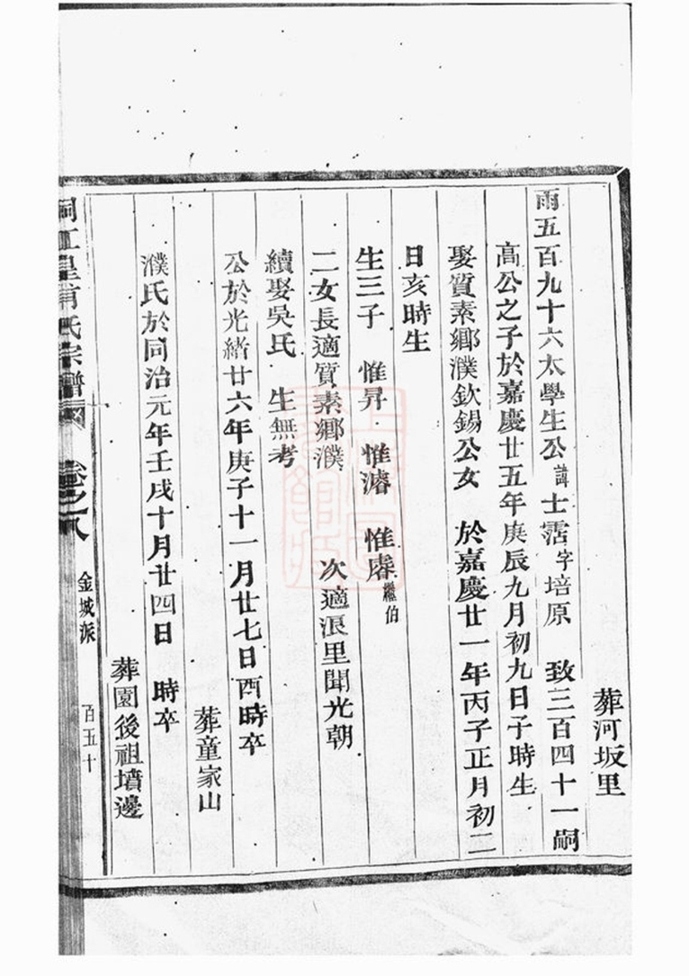 葬河坂里
雨五百九十六太學生公諱士霑字培原 致三百四十一嗣
高公之子於嘉慶廿五年庚辰九月初九日子時生
娶質素鄉濮欽錫公女 於嘉慶廿一年丙子正月初二
日亥時生
生三子 惟昇 惟濬 惟㻸繼伯
二女長適質素鄉濮 次適浪里聞光朝
續娶吳氏 生無考
公於光緒廿六年庚子十一月廿七日酉時卒
葬童家山
濮氏於同治元年壬戌十月廿四日 時卒
葬園後祖墳邊
桐江皇甫氏宗譜 卷之八 金城派 百五十